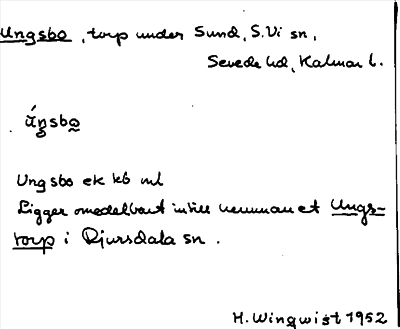 Ungsbo, torp under Sund, S. Vi sn,
Sevede hd, Kalmar l.
úŋsbo̰
Ungsbo ek kb ml
Ligger omedelbart intill hemmanet Ungs-
torp i Djursdala sn.
H. Wingwist 1952